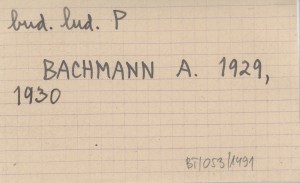 bud. lud. P
BACHMANN A. 1929,
1930
BT/053/1491